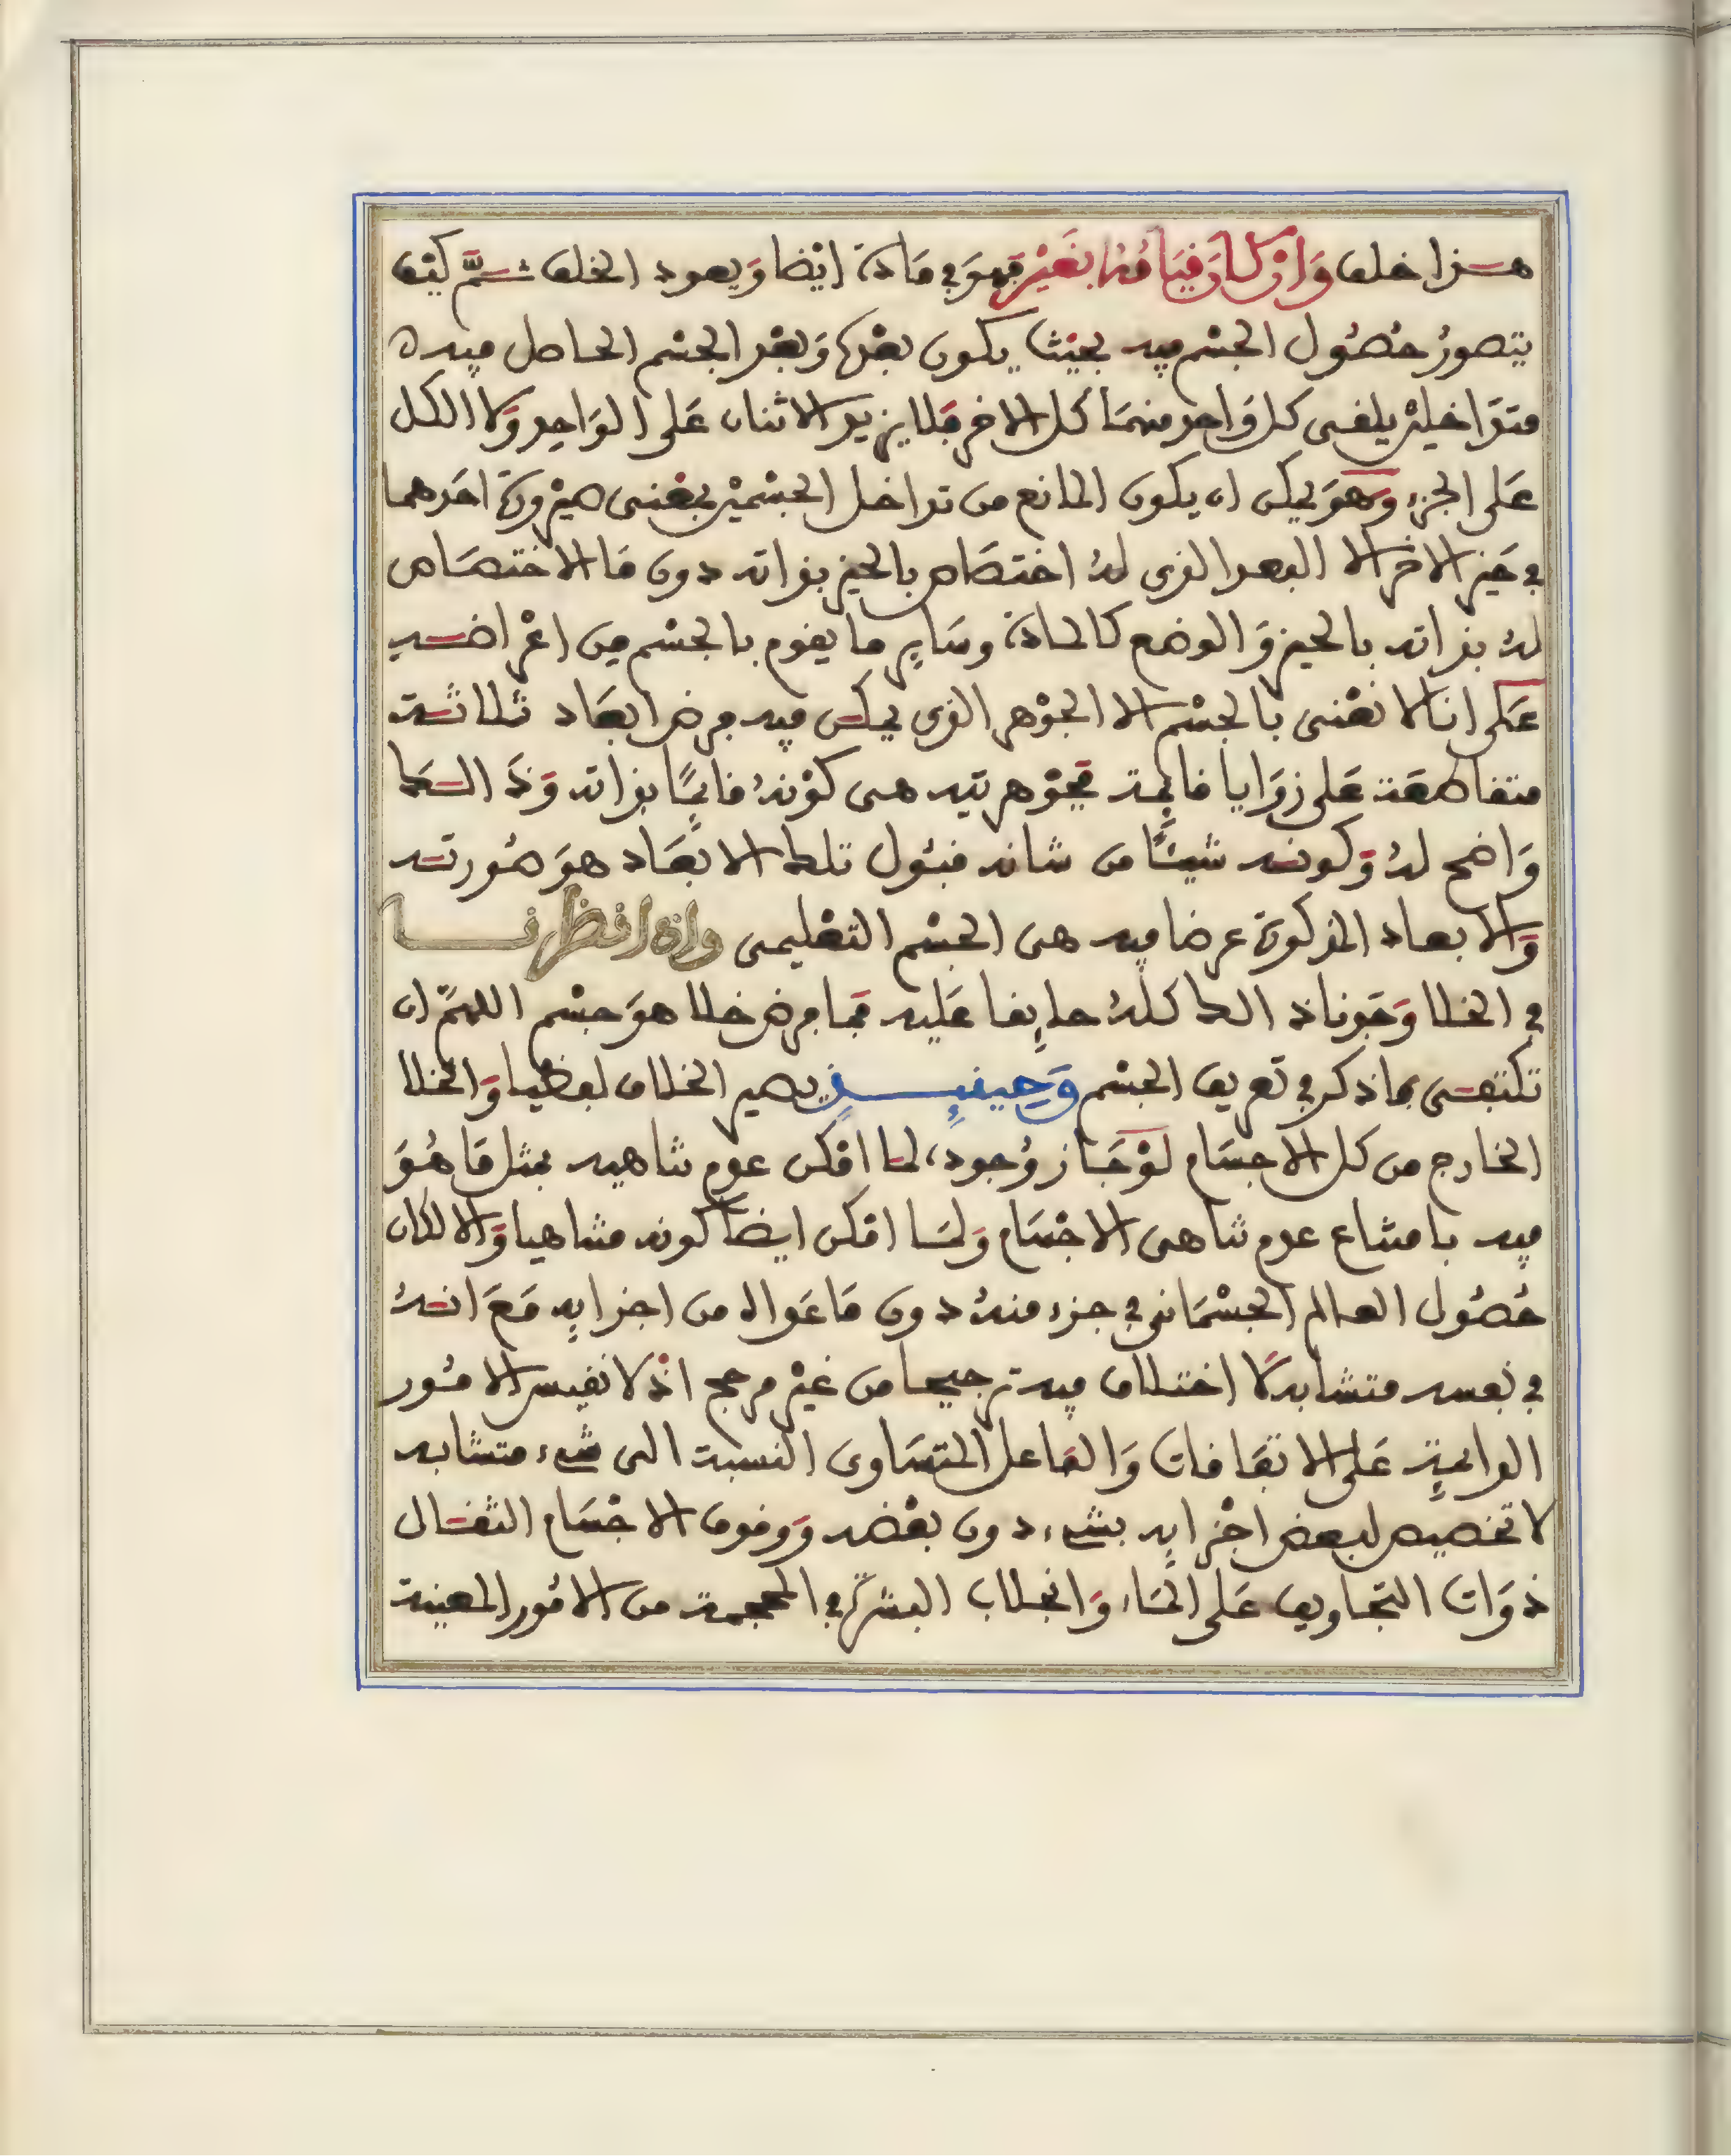 هذا خلف وان كان قيامها بغير فهو في مادة ايضا ويعود الخلف ثم كيف
يتصور حصول الجسم فيه بحيث يكون بعدها وبعد الجسم الحاصل فيه
متداخلين يلقى كل واحد منهما كل الاخر فلا يزيد الاثنان على الواحد ولا الكل
على الجزء وهو يمكن ان يكون المانع من تداخل الجسمين بمعنى صيرورة احدهما
في حيز الاخر الا البعد الذي له اختصاص بالحيز بذاته دون ما لا اختصاص
له بذاته بالحيز والوضع كالمادة وساير ما يقوم بالجسم من اعراضه
على انا لا نعنى بالجسم الا الجوهر الذي يمكن فيه فرض ابعاد ثلاثة
متقاطعة على زوايا قايمة فجوهريته هى كونه قايما بذاته وذالك
واضح له وكونه شيئا من شانه قبول تلك الابعاد هو صورته
والابعاد المذكورة عرضا فيه هى الجسم التعليمى واذا نظرنا
في الخلا وجدنا ذالك كله صادقا عليه فما فرض خلا هو جسم اللهم ان
نكتفى بما ذكر في تعريف الجسم وحينئذ يصير الخلاف لفظيا والخلا
الخارج من كل الاجسام لو جاز وجوده لما امكن عدم تناهيه بمثل ما هو
فيه بامتناع عدم تناهى الاجسام ولما امكن ايضا كونه متناهيا والا لكان
حصول العالم الجسمانى في جزء منه دون ما عداه من اجزايه مع انه
في نفسه متشابه لا اختلاف فيه ترجيحا من غير مرجح اذ لا نقيس الامور
الدايمة على الاتفاقات والفاعل المتساوى النسبة الى شىء متشابه
لا تخصيص لبعض اجزايه بشىء دون بعضه ووقوف الاجسام الثقال
ذوات التجاويف على الماء وانجذاب البشرة في المحجمة من الامور المعينة